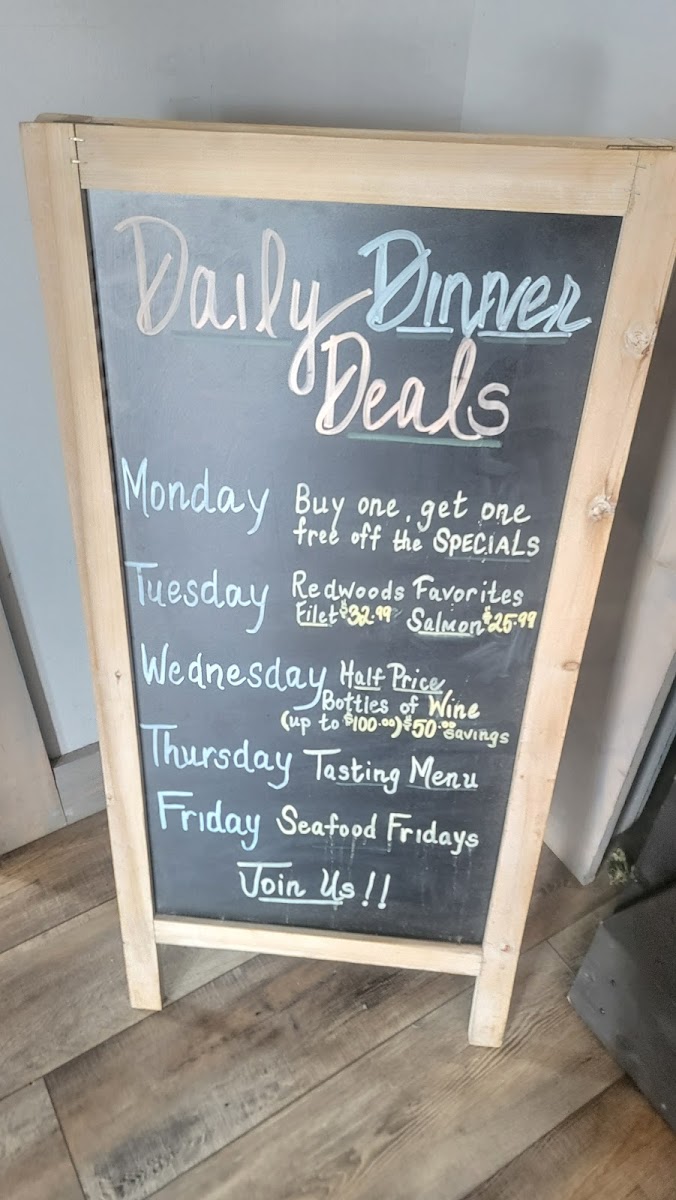 Daily Dinner
Deals
Monday Buy one, get one
free off the SPECIALS
Tuesday Redwoods Favorites
Filet $32.99 Salmon $25.99
Wednesday Half Price
Bottles of Wine
(up to $100.00) $50.00 savings
Thursday Tasting Menu
Friday Seafood Fridays
Join Us!!